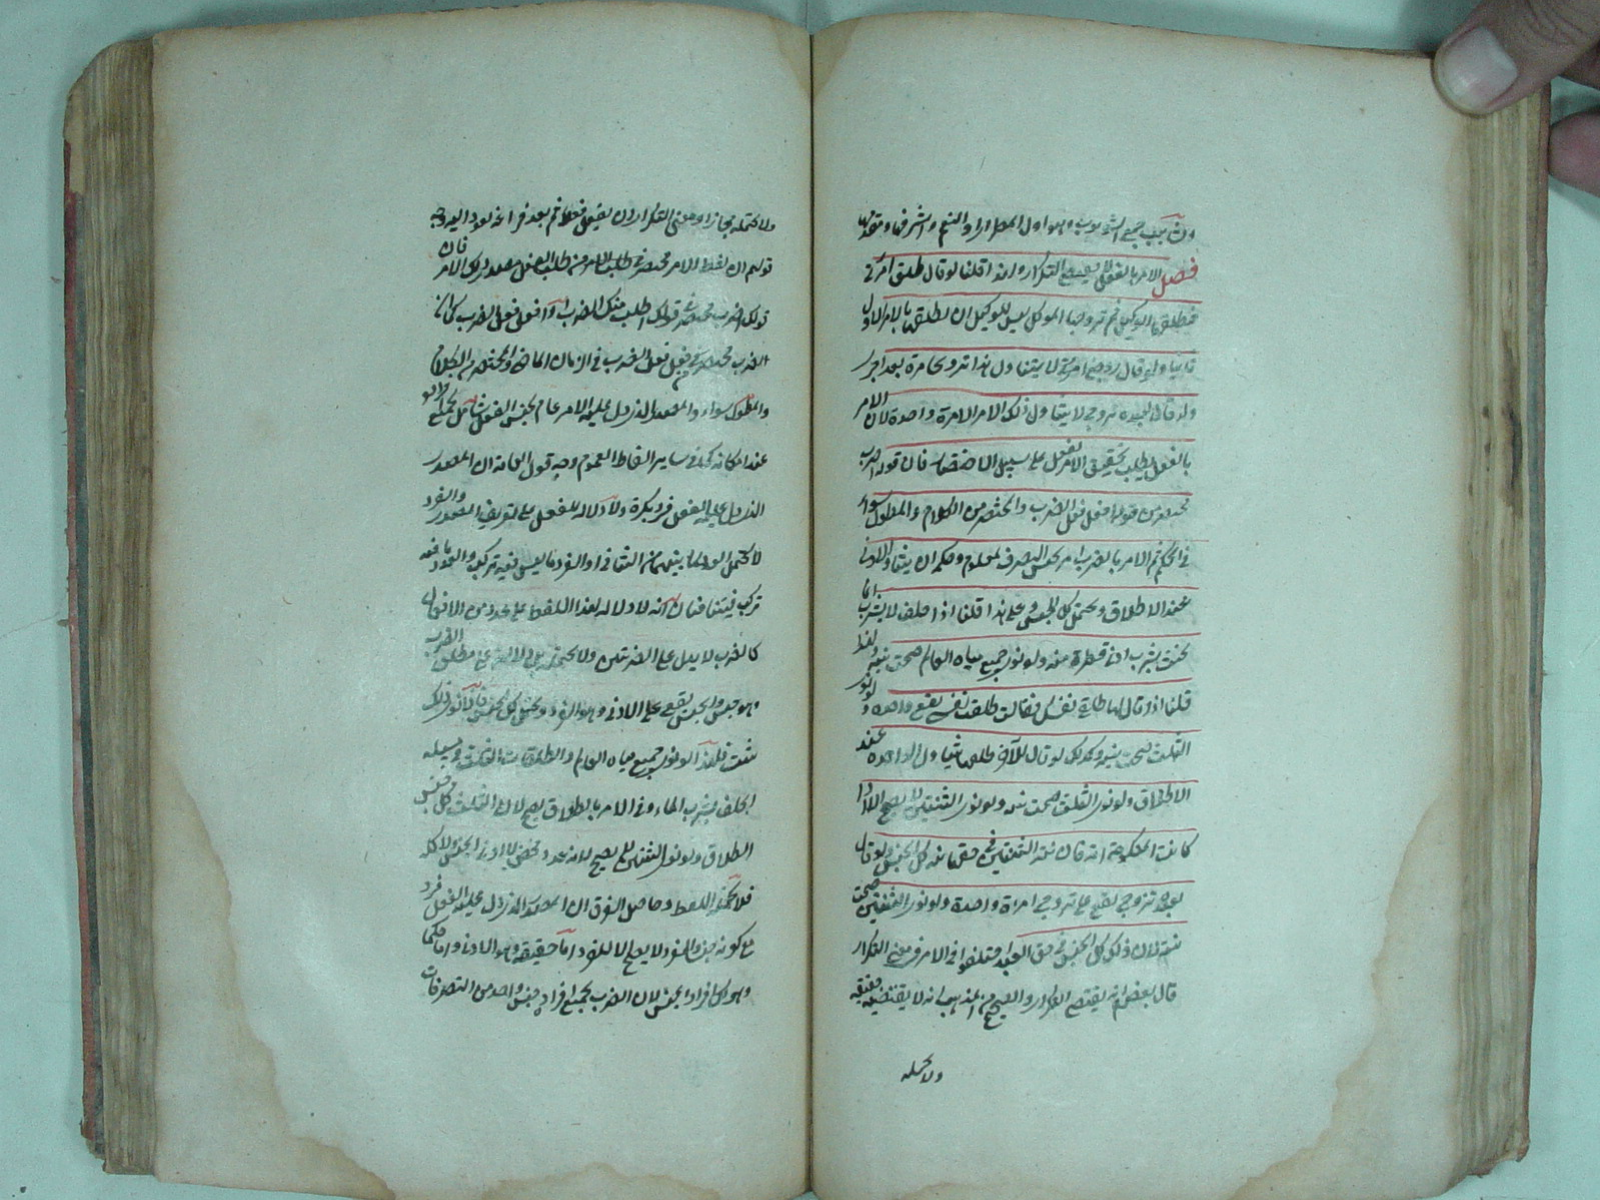 فصل الامر بالفعل لا يقتضي التكرار ولهذا قلنا لو قال طلق امراتي
فطلقها الوكيل ثم تزوجها الموكل ليس للوكيل ان يطلقها بالامر الاول
ثانيا ولو قال زوجني امراة لا يتناول هذا تزويجا مرة بعد اخرى
ولو قال لعبده تزوج لا يتناول ذلك الامر الا مرة واحدة لان الامر
بالفعل طلب تحقيق الفعل على سبيل الاختصار فان قوله اضرب
مختصر من قوله افعل فعل الضرب والمختصر من الكلام والمطول سواء
في الحكم ثم الامر بالضرب امر بجنس تصرف معلوم وحكمه ان يتناول الادنى
عند الاطلاق ويحتمل كل الجنس وعلى هذا قلنا اذا حلف لا يشرب الماء
يحنث بشرب ادنى قطرة منه ولو نوى جميع مياه العالم صحت نيته ولهذا
قلنا اذا قال لها طلقي نفسك فقالت طلقت نفسي يقع واحدة ولو نوى
الثلث صحت نيته وكذلك لو قال للاخر طلقها يتناول الواحدة عند
الاطلاق ولو نوى الثلث صحت نيته ولو نوى الثنتين لا يصح الا اذا
كانت المنكوحة امة فان نية الثنتين في حقها نية كل الجنس ولو قال
لعبده تزوج يقع على تزوج امراة واحدة ولو نوى الثنتين صحت
نيته لان ذلك كل الجنس في حق العبد اختلفوا في الامر في معنى التكرار
قال بعضهم انه يقتضي التكرار والصحيح من المذهب انه لا يقتضيه حقيقة
ولا يحتمله
ولا يحتمله مجازا ومعنى التكرار ان يفعل فعلا ثم بعد فراغه يعود اليه وجه
قولهم ان لفظ الامر مختصر في طلب الامر من طلب الفعل بمصدر ذلك الامر فان
قولك اضرب مختصر في قولك اطلب منك الضرب او افعل فعل الضرب كما ان
الضرب مختصر في فعل فعل الضرب في الزمان الماضي والمختصر من الكلام
والمطول سواء والمصدر الذي دل عليه الامر عام لجنس الفعل شامل
عند امكانه كما في ساير الفاظ العموم وجه قول العامة ان المصدر
الذي دل عليه الفعل فرد نكرة ولا دلالة للفعل على تعريف المصدر والفرد
لا يحتمل العدد لما بينهما من التنافي اذ الفرد ما ليس فيه تركب والعدد ما فيه
تركب فيتنافيان لانه لا دلالة لهذا اللفظ على عدد من الافعال
كالضرب لا يدل على الضربتين ولا يحتمله بل دلالته على مطلق الضرب
وهو جنس والجنس يقع على الادنى وهو الفرد ويحتمل كل الجنس فاذا نوى ذلك
صحت فلهذا لو نوى جميع مياه العالم والطلقات الثلث في مسئلة
الحلف بشرب الماء وفي الامر بالطلاق يصح لان الثلث كل جنس
الطلاق ولو نوى الثنتين لا يصح لانه عدد محض لا ادنى الجنس ولا كله
فلا يحتمله اللفظ وحاصل الفرق ان المصدر الذي دل عليه الفعل فرد
مع كونه جنسا والمفرد لا يصلح الا للفرد اما حقيقة وهو الادنى واما حكما
وهو كل افراد الجنس لان الضرب بجميع افراده جنس واحد من التصرفات